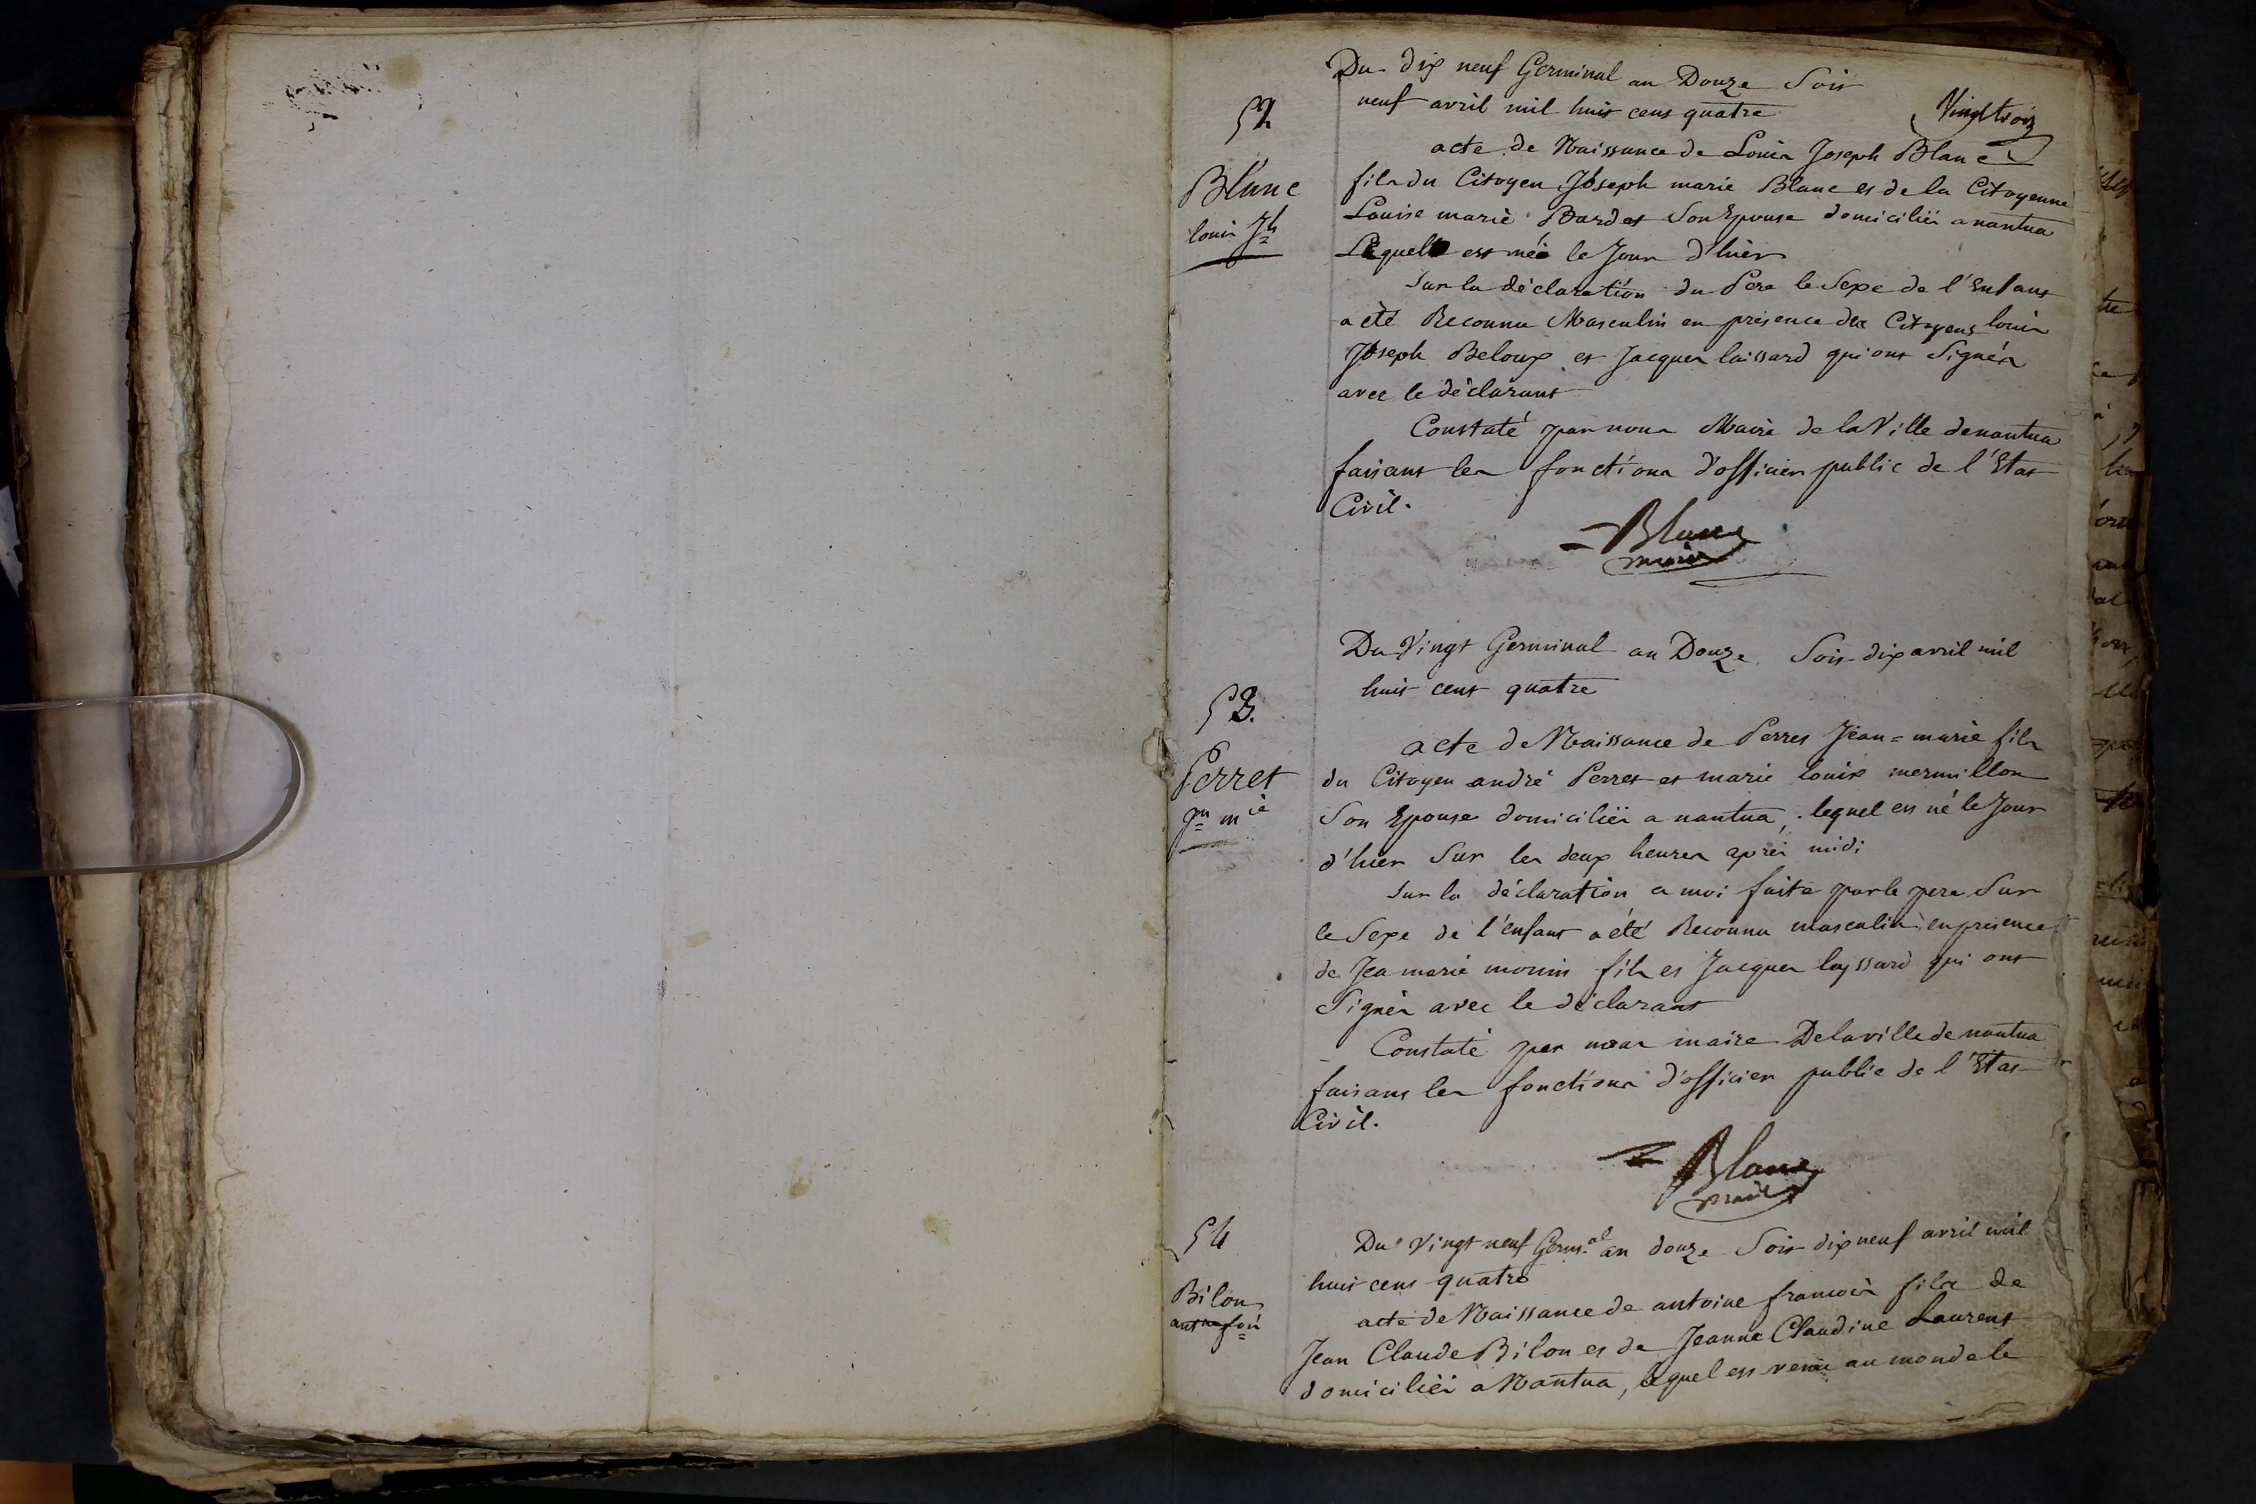 Vingt trois
Du dix neuf Germinal an Douze Soit
neuf avril mil huit cens quatre
52
Blanc
louis Jh
acte de Naissance de Louis Joseph Blanc
fils du Citoyen Joseph marie Blanc et de la Citoyenne
Louise marie Bardet Son Epouse domiciliés a nantua
Lequel est né le Jour d'hier
Sur la déclaration du Pere le Sexe de l'Enfant
a été Reconnu Masculin en présence des Citoyens louis
Joseph Beloux et Jacques laissard qui ont Signés
avec le déclarant
Constaté par nous Maire de la Ville de nantua
faisant les fonctions d'officier public de l'Etat
Civil.
Blanc
maire
Du Vingt Germinal an Douze Soit dix avril mil
huit cent quatre
53.
Perret
Jn mie
acte de Naissance de Perret Jean=marie fils
du Citoyen andré Perret et marie louise mermillon
Son Epouse domiciliés a nantua, lequel est né le Jour
d'hier Sur les deux heures après midi
Sur la déclaration a moi faite par le pere Sur
le Sexe de l'enfant a été Reconnu masculin en présence
de Jea marie monin fils et Jacques layssard qui ont
Signés avec le déclarant
Constaté par nous maire De la ville de nantua
faisant les fonctions d'officier public de l'Etat
Civil.
Blanc
maire
54
Bilon
ant ne fois
Du Vingt neuf Germ.al an douze Soit dix neuf avril mil
huit cent quatre
acte de Naissance de antoine francois fils de
Jean Claude Bilon et de Jeanne Claudine Laurent
domiciliés a Nantua, lequel est venu au monde le